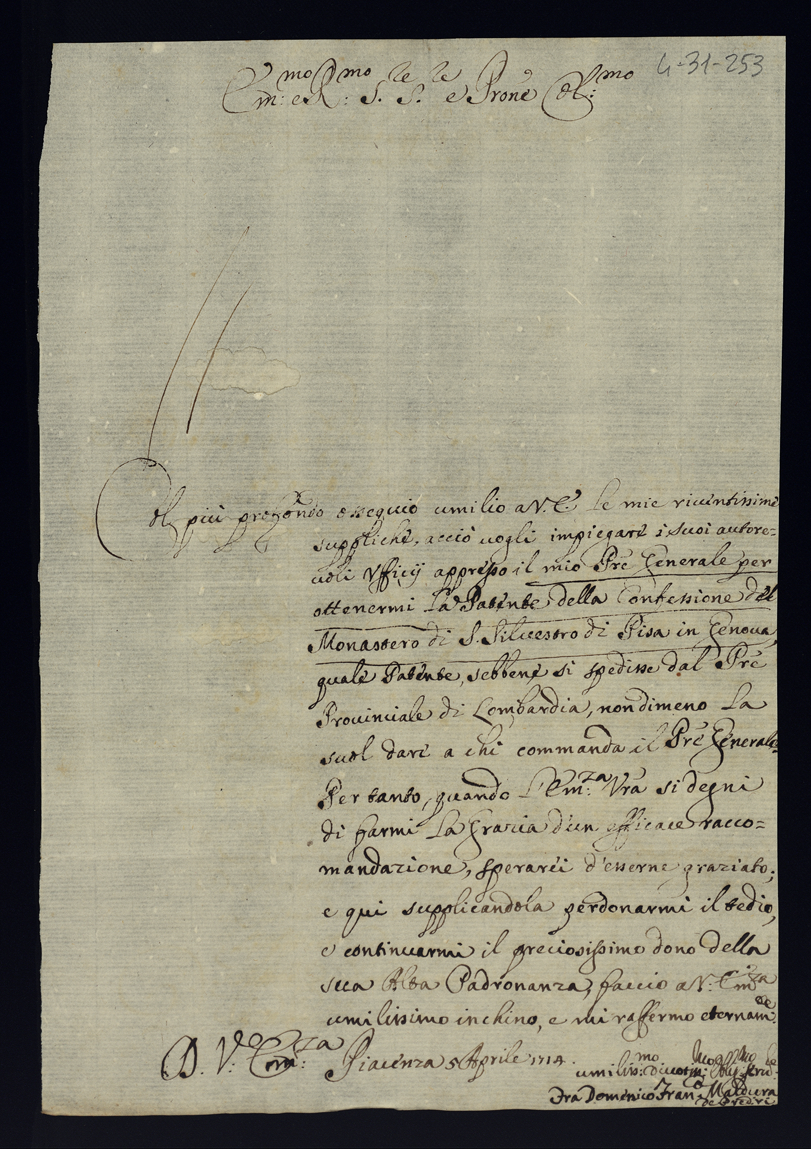 4-31-253
Em:mo e R:mo S.re S.re e Prone Col:mo
Col più profondo ossequio umilio a V. E. le mie riverentissime
suppliche, acciò vogli impiegare i suoi autore=
voli Ufficij appresso il mio Prē Generale per
ottenermi la Patente della Confessione del
Monastero di S. Silvestro di Pisa in Genova,
quale Patente, sebbene si spedisse dal Prē
Provinciale di Lombardia, nondimeno la
suol dare a chi commanda il Prē Generale.
Per tanto, quando l'Em:za Vrā si degni
di farmi la grazia d'un efficace racco=
mandazione, sperarei d'esserne graziato;
e qui supplicandola perdonarmi il tedio,
e continuarmi il preciosissimo dono della
sua Alta Padronanza, faccio a V. Em:za
umilissimo inchino, e mi raffermo eternam.te
D. V. Em:za Piacenza 5 Aprile 1714.
umiliss:mo divotiss:mo Obl:mo Serv:re
Fra Domenico Fran.co Maldura
de Pred.ri